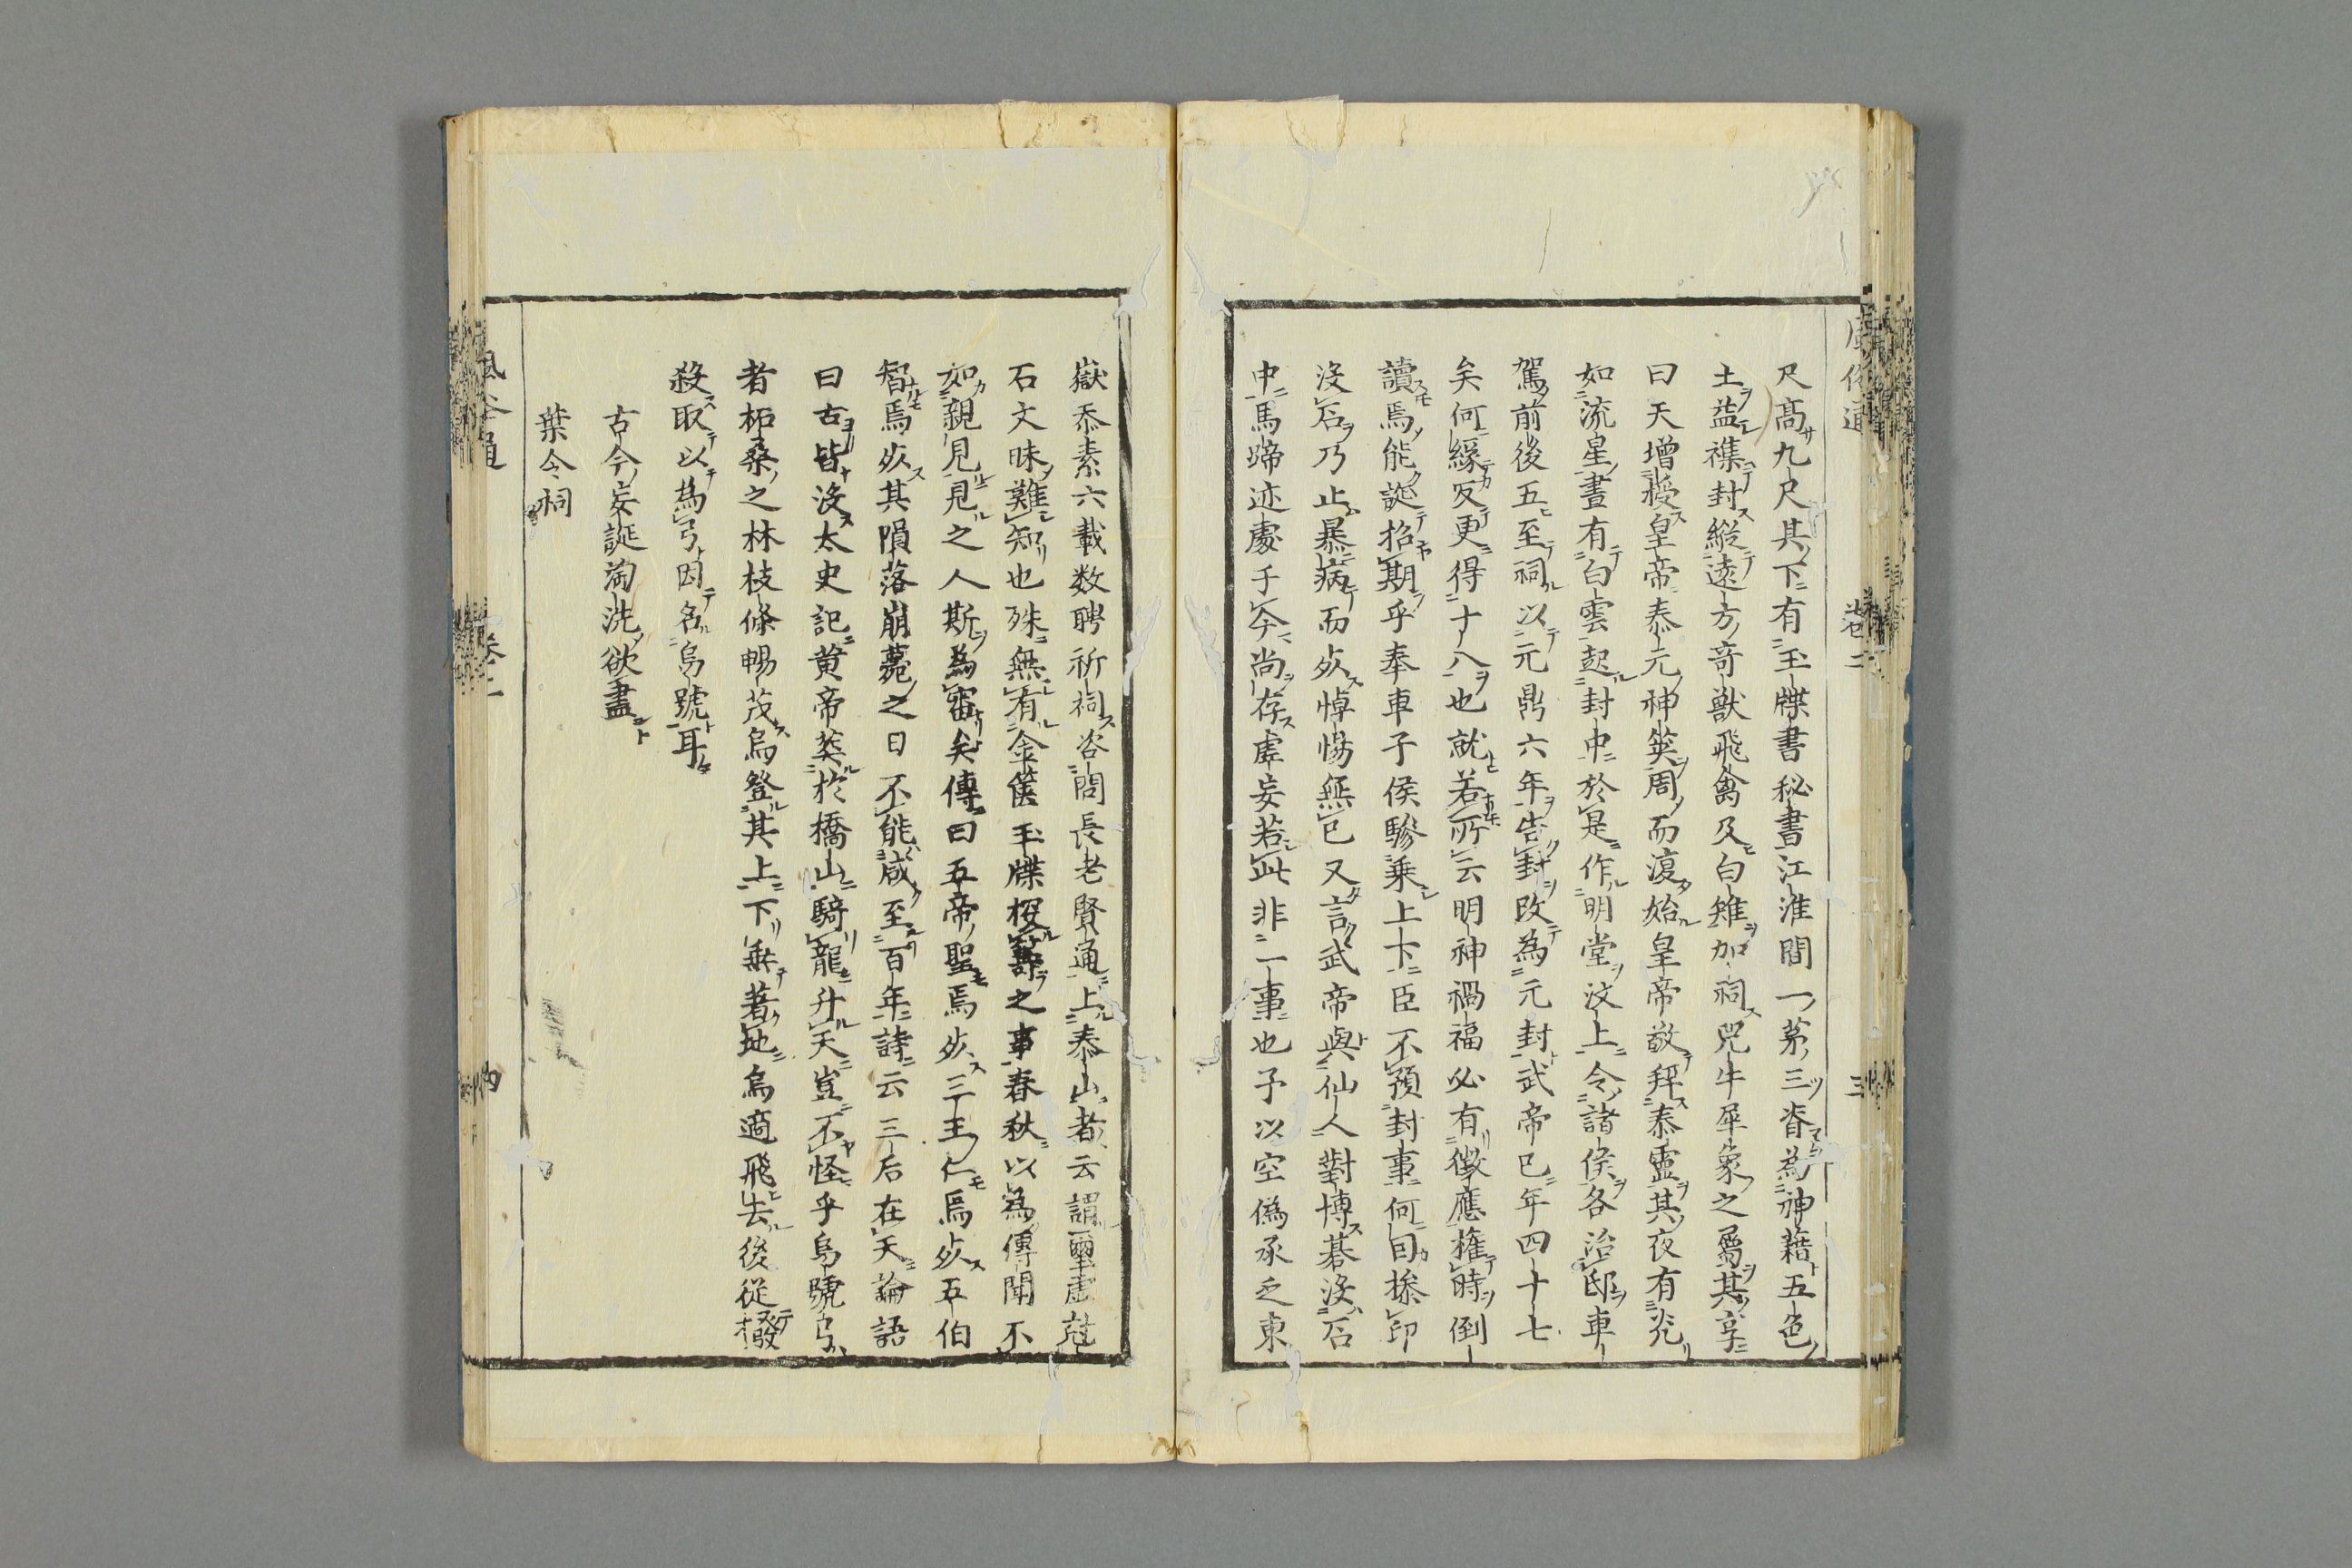 尺高九尺其下有玉牒書秘書江淮間一茅三脊為神藉五色
土益襍封縱遠方竒獸飛禽及白雉加祠兕牛犀象之屬其享
曰天増授皇帝泰元神筴周而復始皇帝敬拜泰靈其夜有光
如流星晝有白雲起封中於是作明堂汶上令諸侯各治邸車
駕前後五至祠以元鼎六年告封改為元封武帝已年四十七
矣何緣反更得十八也就若所云明神禍福必有徴應権時倒
讀焉能誕招期乎奉車子侯驂乗上下臣不預封事何因操印
没石乃止暴病而死悼惕無已又言武帝與仙人對博碁没石
中馬蹄迹處于今尚存虚妄若此非二事也予以空偽承乏東
嶽忝素六載数聘祈祠咨問長老賢通上泰山者云謂璽處尅
石文昧難知也殊無有金篋玉牒探籌之事春秋以為傳聞不
如親見見之人斯為審矣傳曰五帝聖焉死三王仁焉死五伯
智焉死其隕落崩薨之日不能咸至百年詩云三后在天論語
曰古皆没太史記黄帝葬於橋山騎龍升天豈不怪乎烏號弓
者柘桑之林枝條暢茂烏登其上下垂著地烏適飛去後從撥
殺取以為弓因名烏號耳
古今妄誕淘洗欲盡
葉令祠
卷二
三